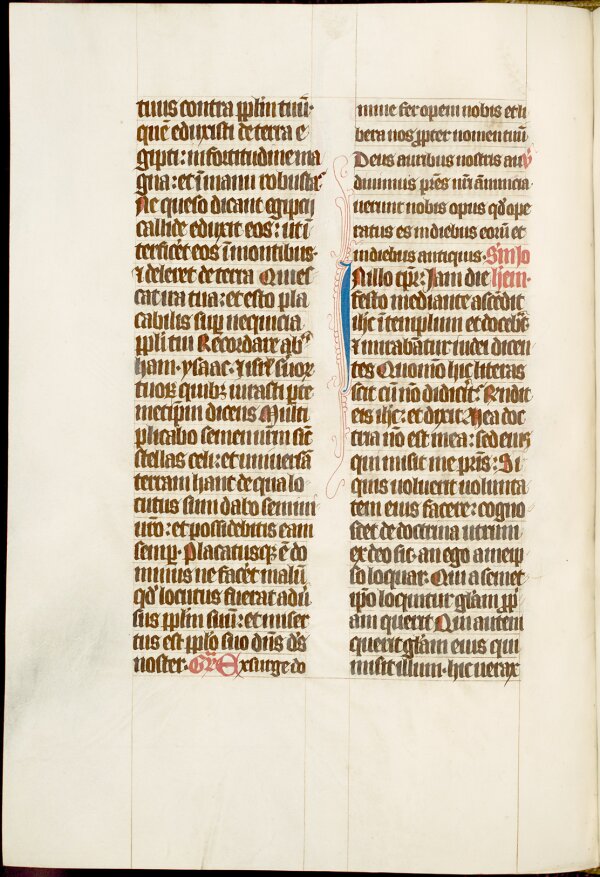 tuus contra pplm tuū·
quē eduxisti de terra e
gipti: in fortitudine ma
gna: et ī manu robusta·
Ne queso dicant egiptij
callide eduxit eos: ut ī
terficēt eos ī montibus·
⁊ deleret de terra Quies
cat ira tua: et esto pla
cabilis suꝑ nequicia
ppli tui Recordare abͬ
ham· ysaac· ⁊ isrl̄ suoꝝ
tuoꝝ quibꝫ iurasti ꝑ te
metip̄m dicens Multi
plicabo semen ur̄m sic̄
stellas celi: et uniuersā
terram hanc de qua lo
cutus sum dabo semini
ur̄o: et possidebitis eam
semꝑ· Placatusqꝫ ē do
minus ne facēt malū
qd̓ locutus fuerat adū
sus pplm suū: et miser
tus est pplo suo dn̄s d̄s
noster· Gr̄ Exsurge do
mine fer opem nobis et li
bera nos ꝓpter nomen tuū
Deus auribus nostris au
℣
diuimus pr̄es nr̄i ānuncia
uerunt nobis opus qd̓ ope
ratus es in diebus eorū et
in diebus antiquis· S̄m Jo
hem·
In illo tp̄r: Jam die
festo mediante ascēdit
ihc ī templum et docebat·
⁊ mirabātur iudei dicen
tes Quomō hic literas
scit cū nō didicit: Rūdit
eis ihc: et dixit: Mea doc
trina nō est mea: sed eius
qui misit me pr̄is: Si
quis uoluerit uolunta
tem eius facere: cogno
scet de doctrina utrum
ex deo sit· an ego a meip̄
so loquar· Qui a semet
ip̄o loquitur glām pp̄
am querit Qui autem
querit glām eius qui
misit illum· hic uerax